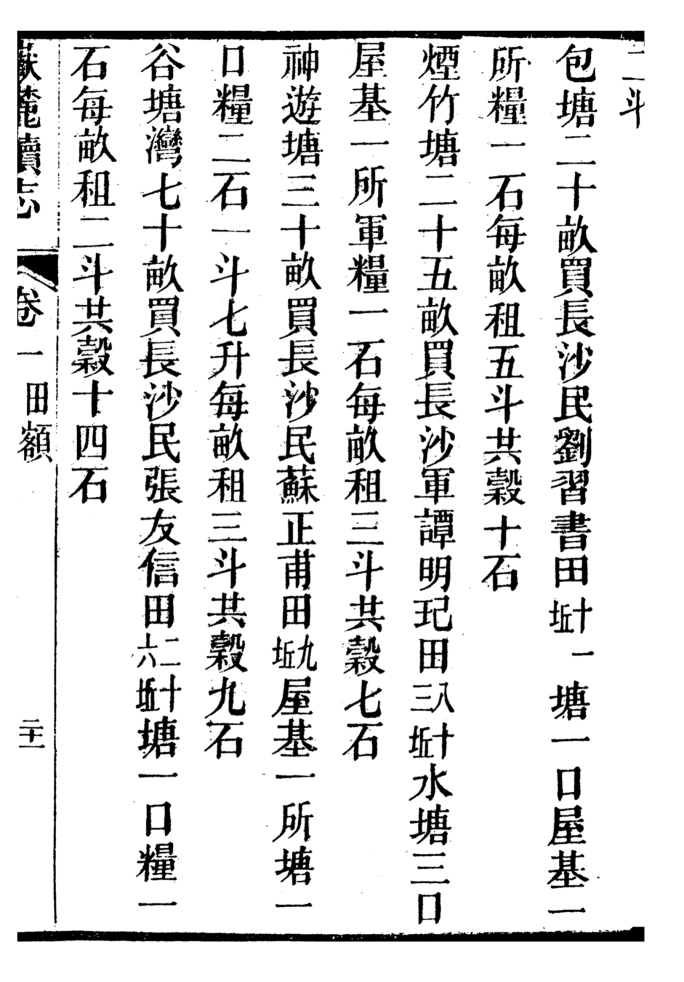 二斗
包塘二十畝買長沙民劉習書田十一坵塘一口屋基一
所糧一石每畝租五斗共穀十石
煙竹塘二十五畝買長沙軍譚明玘田八十三坵水塘三口
屋基一所軍糧一石每畝租三斗共穀七石
神遊塘三十畝買長沙民蘇正甫田九坵屋基一所塘一
口糧二石一斗七升每畝租三斗共穀九石
谷塘灣七十畝買長沙民張友信田二十六坵塘一口糧一
石每畝租二斗共穀十四石
嶽麓續志 卷一 田額 二十一